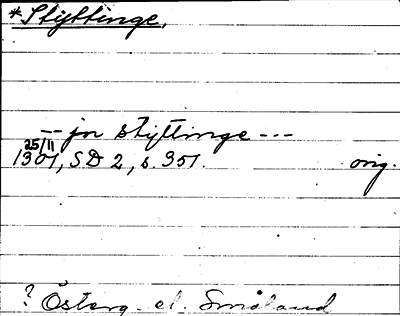 *Styttinge.
-- jn styttinge ---
25/11
1301, SD 2, s. 351. orig.
? Österg. el. Småland